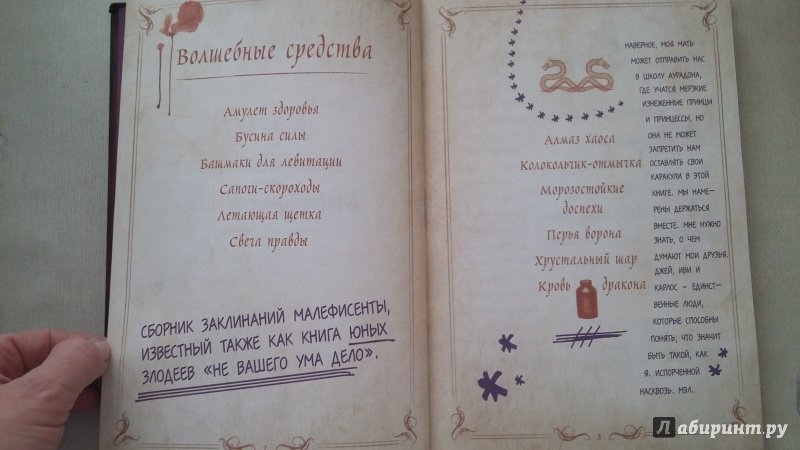 Волшебные средства
Амулет здоровья
Бусина силы
Башмаки для левитации
Сапоги-скороходы
Летающая щетка
Свеча правды
СБОРНИК ЗАКЛИНАНИЙ МАЛЕФИСЕНТЫ,
ИЗВЕСТНЫЙ ТАКЖЕ КАК КНИГА ЮНЫХ
ЗЛОДЕЕВ «НЕ ВАШЕГО УМА ДЕЛО».
Алмаз хаоса
Колокольчик-отмычка
Морозостойкие
доспехи
Перья ворона
Хрустальный шар
Кровь дракона
НАВЕРНОЕ, МОЯ МАТЬ
МОЖЕТ ОТПРАВИТЬ НАС
В ШКОЛУ АУРАДОНА,
ГДЕ УЧАТСЯ МЕРЗКИЕ
ИЗНЕЖЕННЫЕ ПРИНЦЫ
И ПРИНЦЕССЫ, НО
ОНА НЕ МОЖЕТ
ЗАПРЕТИТЬ НАМ
ОСТАВЛЯТЬ СВОИ
КАРАКУЛИ В ЭТОЙ
КНИГЕ. МЫ НАМЕ-
РЕНЫ ДЕРЖАТЬСЯ
ВМЕСТЕ. МНЕ НУЖНО
ЗНАТЬ, О ЧЕМ
ДУМАЮТ МОИ ДРУЗЬЯ.
ДЖЕЙ, ИВИ И
КАРЛОС – ЕДИНСТ-
ВЕННЫЕ ЛЮДИ,
КОТОРЫЕ СПОСОБНЫ
ПОНЯТЬ, ЧТО ЗНАЧИТ
БЫТЬ ТАКОЙ, КАК
Я. ИСПОРЧЕННОЙ
НАСКВОЗЬ. МЭЛ.
3
Лабиринт.ру